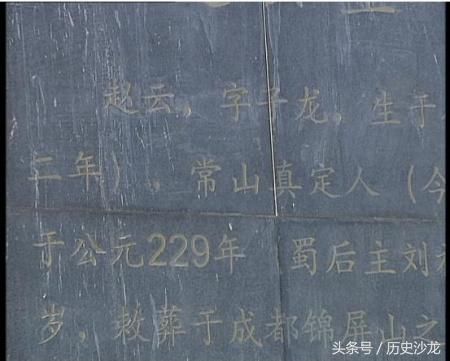 赵云，字子龙，生于
二年），常山真定人（今
于公元229年（蜀后主刘
岁，敕葬于成都锦屏山之
头条号／历史沙龙